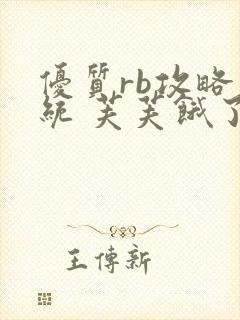 優質rb攻略
統 芙芙餓了
王傳新